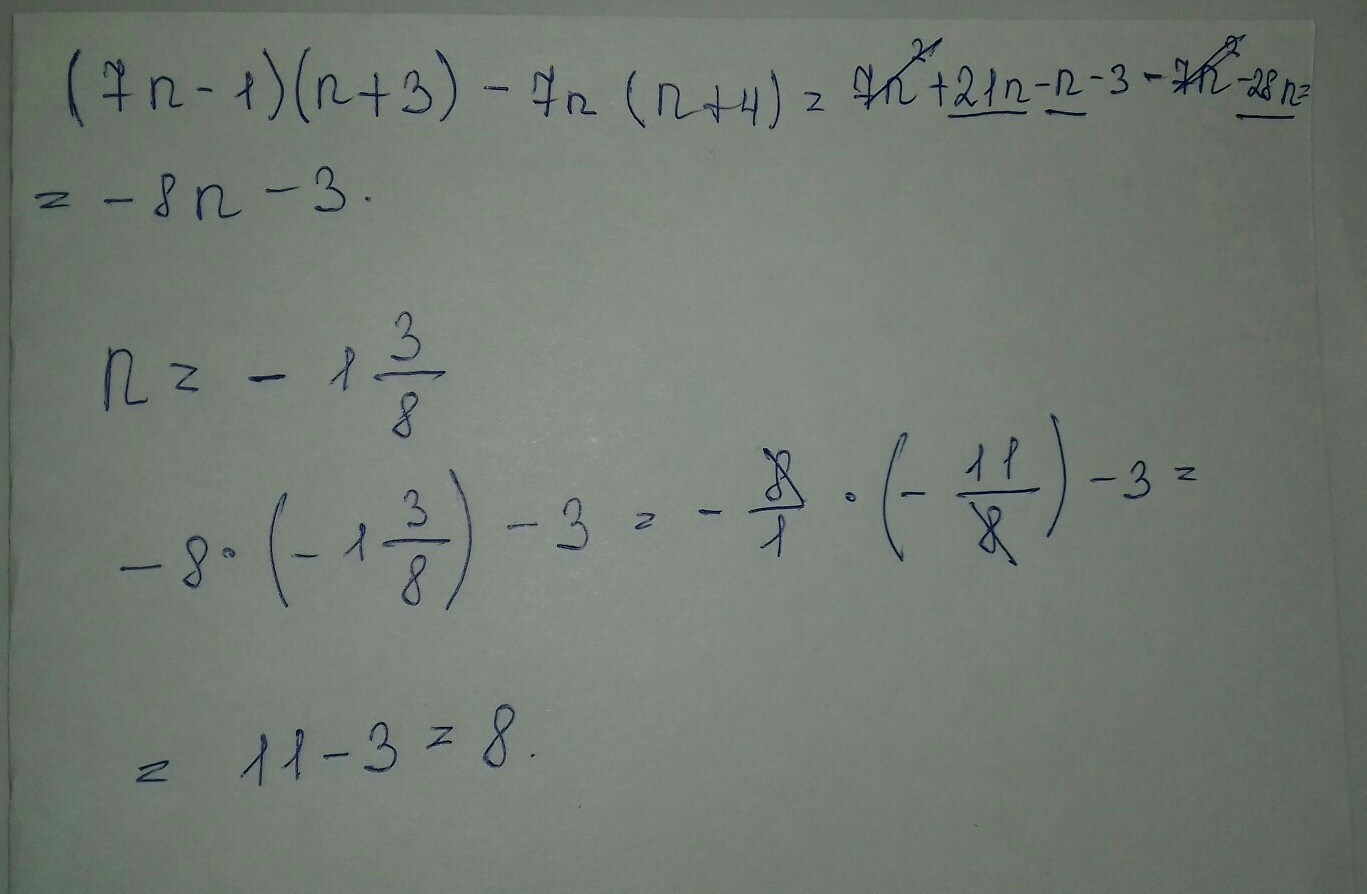 (7n-1)(n+3) - 7n (n+4) = 7n² + 21n - n - 3 - 7n² - 28n =
= - 8n - 3.
n = - 1 3/8
- 8 · (- 1 3/8) - 3 = - 8/1 · (- 11/8) - 3 =
= 11 - 3 = 8.